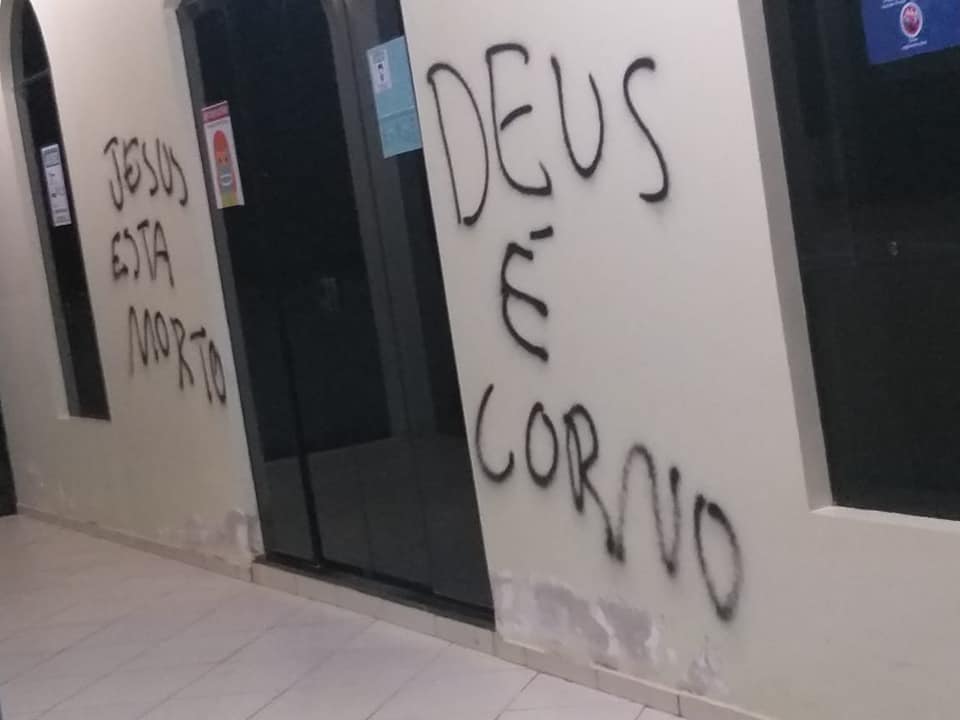 JESUS
ESTA
MORTO
DEUS
É
CORNO